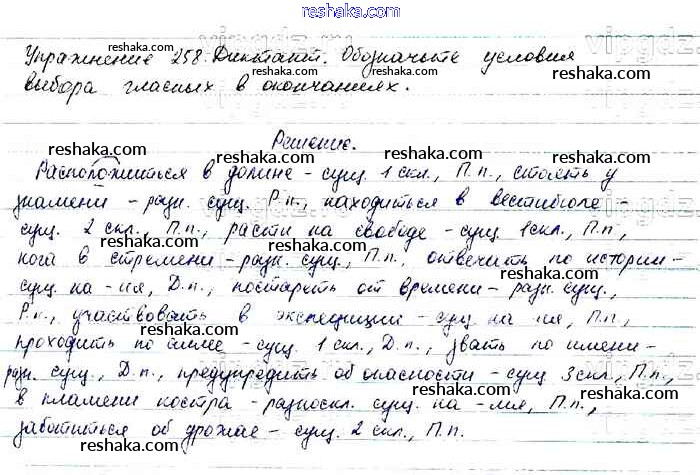 reshaka.com
Упражнение 258. Диктант. Обозначьте условия
выбора гласных в окончаниях.
Решение.
Расположиться в долине - сущ. 1 скл., П.п., стоять у
знамени - разн. сущ. Р.п., находиться в вестибюле -
сущ. 2 скл., П.п., расти на свободе - сущ. 1 скл., П.п.,
нога в стремени - разн. сущ., П.п., отвечать по истории -
сущ. на -ия, Д.п., постареть от времени - разн. сущ.,
Р.п., участвовать в экспедиции - сущ. на -ия, П.п.,
проходить по аллее - сущ. 1 скл., Д.п., звать по имени -
разн. сущ., Д.п., предупредить об опасности - сущ 3 скл., П.п.,
в пламени костра - разноскл. сущ. на -мя, П.п.,
заботиться об урожае - сущ. 2 скл., П.п.